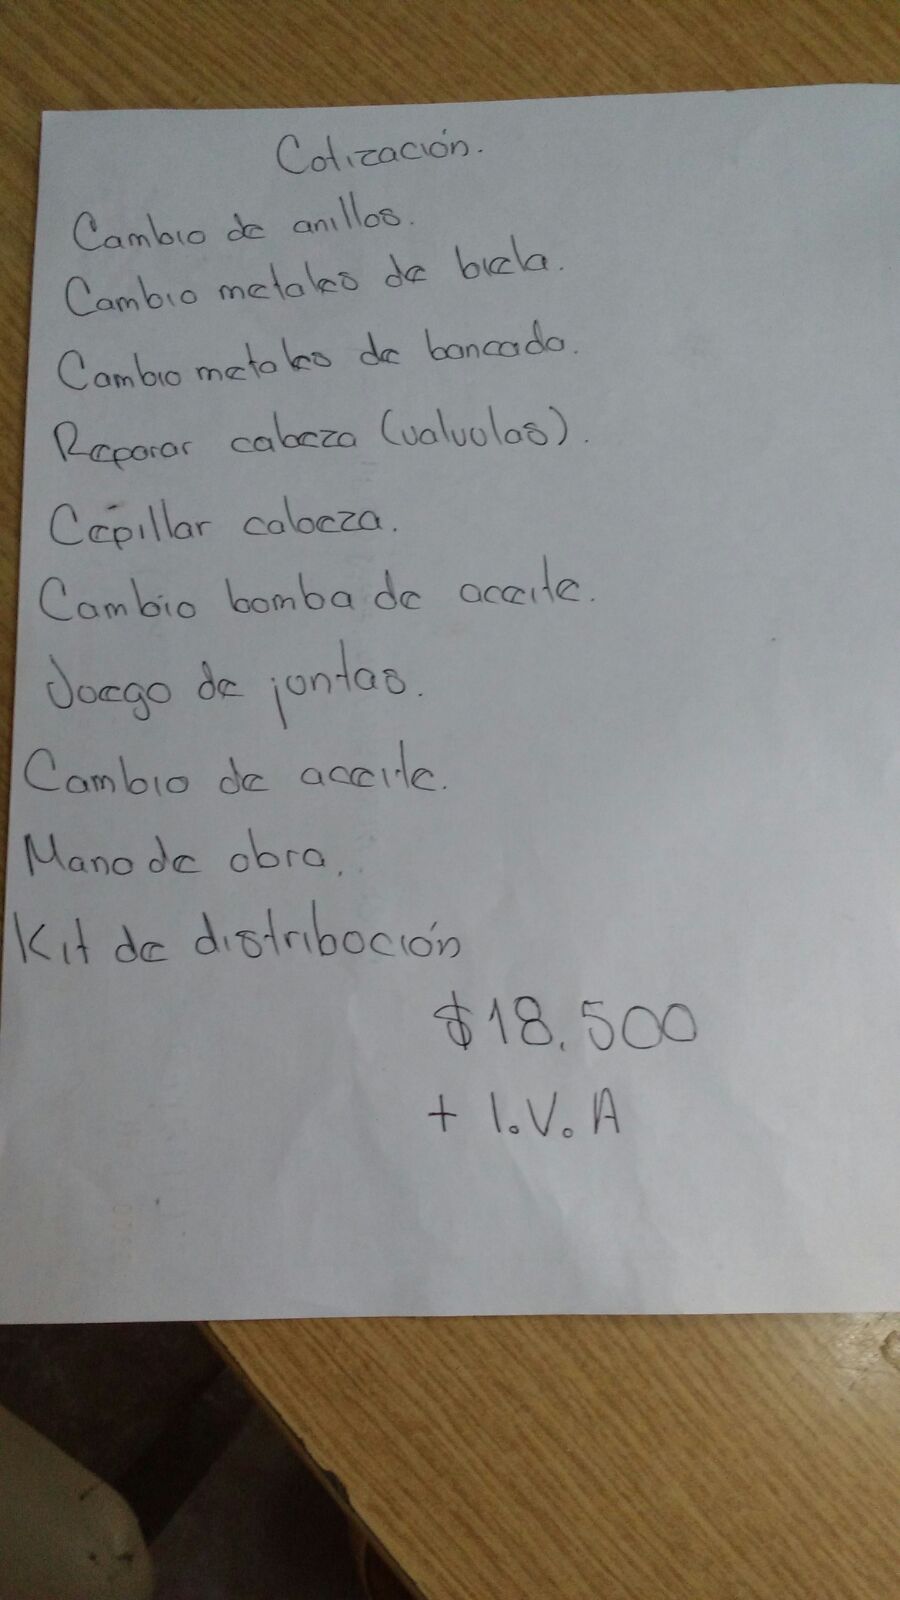 Cotización.
Cambio de anillos.
Cambio metales de biela.
Cambio metales de bancada.
Reparar cabeza (valvulas).
Cepillar cabeza.
Cambio bomba de aceite.
Juego de juntas.
Cambio de aceite.
Mano de obra.
Kit de distribución
$18.500
+ I.V.A